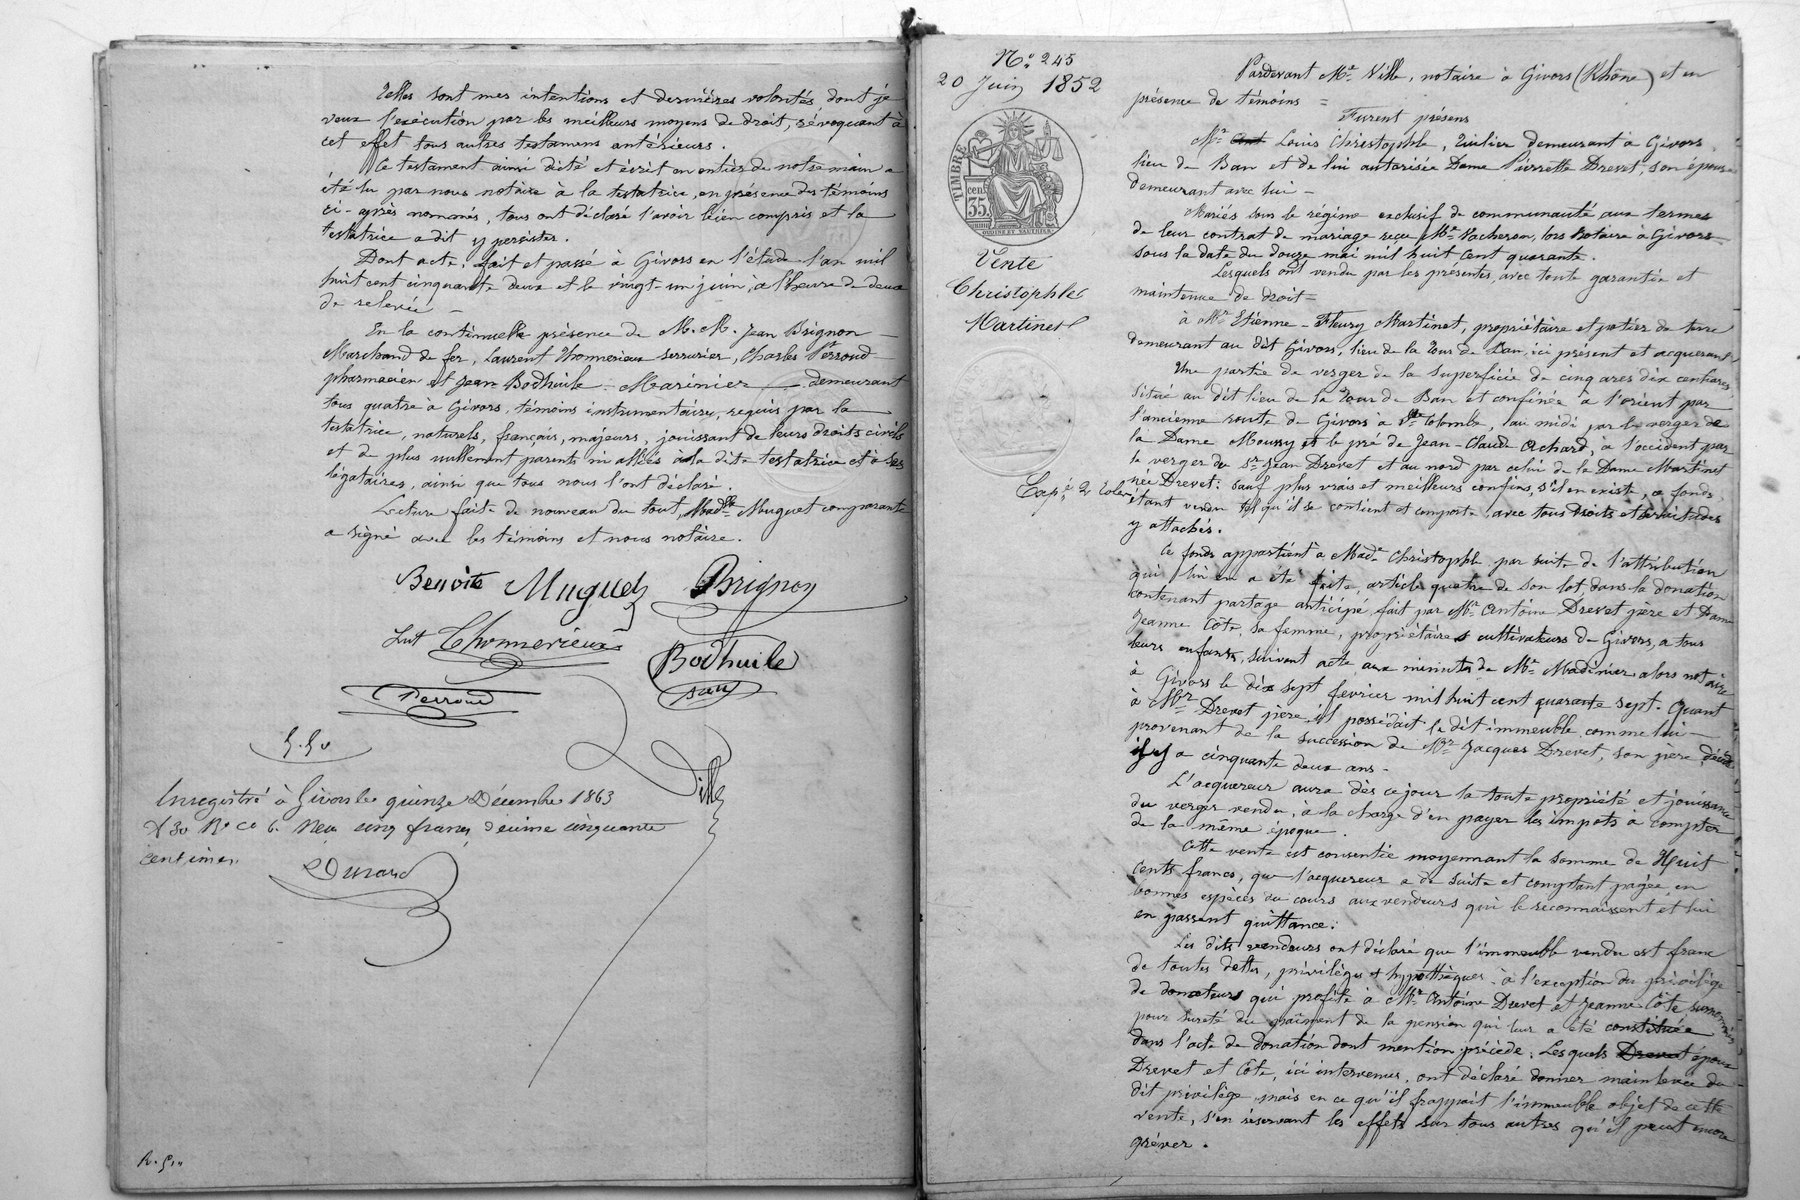 Telles sont mes intentions et dernières volontés, dont je
veux l'exécution par les meilleurs moyens de droit, révoquant à
cet effet tous autres testamens antérieurs.
Ce testament ainsi dicté et écrit en entier de notre main a
été lu par nous notaire à la testatrice, en présence des témoins
ci-après nommés, tous ont déclaré l'avoir bien compris et la
testatrice a dit y persister.
Dont acte, fait et passé à Givors en l'étude l'an mil
huit cent cinquante deux et le vingt-un juin, à l'heure de deux
de relevée -
En la continuelle présence de M.M. Jean Brignon
Marchand de fer, Laurent Thonnerieux serrurier, Charles Perroud
pharmacien et Jean Bodhuile - Marinier - demeurant
tous quatre à Givors, témoins instrumentaires, requis par la
testatrice, naturels, français, majeurs, jouissant de leurs droits civils
et de plus nullement parents ni alliés à la dite testatrice et à ses
légataires, ainsi que tous nous l'ont déclaré.
Lecture faite de nouveau du tout, Madlle Muguet comparante
a signé avec les témoins et nous notaire.
Benoite Muguet Brignon
Lnt Thonnerieux
Bodhuile
Perroud
Ville
Enregistré à Givors le quinze Décembre 1863
f° 30 R° Ce 6. Reçu cinq francs, décime cinquante
centimes
Durand
N° 245
20 Juin 1852
TIMBRE
35
cen
Vente
Christophle
Martinet
Expé 2 rôles
Pardevant Me Ville, notaire à Givors (Rhône) et en
présence de témoins =
Furent présens
Mr Louis Christophle, Tuilier demeurant à Givors,
lieu de Ban et de lui autorisée Dame Pierrette Drevet, son épouse
demeurant avec lui -
Mariés sous le régime exclusif de communauté aux termes
de leur contrat de mariage reçu Me Vacheron, lors Notaire à Givors
sous la date du douze mai mil huit cent quarante.
Lesquels ont vendu par les présentes, avec toute garantie et
maintenue de droit =
à Mr Etienne-Fleury Martinet, propriétaire et potier de terre
demeurant au dit Givors, lieu de la Tour de Ban, ici présent et acquérant,
Une partie de verger de la superficie de cinq ares dix centiares,
situé au dit lieu de la Tour de Ban et confinée à l'orient par
l'ancienne route de Givors à Ste Colombe, au midi par le verger de
la Dame Moussy et le pré de Jean-Claude Achard, à l'occident par
le verger du Sr Jean Drevet et au nord par celui de la Dame Martinet
née Drevet; sauf plus vrais et meilleurs confins, s'il en existe, ce fonds
étant vendu tel qu'il se contient et comporte, avec tous Droits et servitudes
y attachés.
Ce fonds appartient à Made Christophle par suite de l'attribution
qui lui en a été faite, article quatre de son lot, dans la donation
contenant partage anticipé fait par Mr Antoine Drevet père et Dame
Jeanne Côte, sa femme, propriétaires cultivateurs de Givors, à tous
leurs enfants, suivant acte aux minutes de Me Madinier alors notaire
à Givors le dix sept février mil huit cent quarante sept. Quant
à Mr Drevet père, il possédait le dit immeuble comme lui
provenant de la succession de Mr Jacques Drevet, son père, décédé
il y a cinquante deux ans -
L'acquéreur aura dès ce jour la toute propriété et jouissance
du verger vendu, à la charge d'en payer les impots à compter
de la même époque.
Cette vente est consentie moyennant la somme de Huit
cents francs, que l'acquéreur a de suite et comptant payée en
bonnes espèces du cours aux vendeurs qui le reconnaissent et lui
en passent quittance;
Les dits vendeurs ont déclaré que l'immeuble vendu est franc
de toutes dettes, privilèges et hypothèques, à l'exception du privilége
de donateurs qui profite à Mr Antoine Drevet et Jeanne Côte susnommés
pour sureté du paiment de la pension qui leur a été constituée
dans l'acte de donation dont mention précède; Lesquels Drevet époux
Drevet et Côte, ici intervenus, ont déclaré donner mainlevée du
dit privilége, mais en ce qu'il frappait l'immeuble objet de cette
vente, s'en réservant les effets sur tous autres qu'il peut encore
gréver.